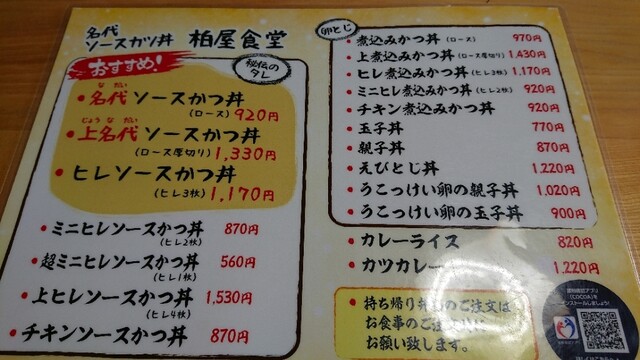 名代
ソースカツ丼 柏屋食堂
おすすめ!
秘伝のタレ
なだい
・名代 ソースかつ丼
(ロース) 920円
じょうなだい
・上名代 ソースかつ丼
(ロース厚切り) 1,330円
・ヒレソースかつ丼
(ヒレ3枚) 1,170円
・ミニヒレソースかつ丼 870円
(ヒレ2枚)
・超ミニヒレソースかつ丼 560円
(ヒレ1枚)
・上ヒレソースかつ丼 1,530円
(ヒレ4枚)
・チキンソースかつ丼 870円
卵とじ
・煮込みかつ丼 (ロース) 970円
・上煮込みかつ丼 (ロース厚切り) 1,430円
・ヒレ煮込みかつ丼 (ヒレ3枚) 1,170円
・ミニヒレ煮込みかつ丼 (ヒレ2枚) 920円
・チキン煮込みかつ丼 920円
・玉子丼 770円
・親子丼 870円
・えびとじ丼 1,220円
・うこっけい卵の親子丼 1,020円
・うこっけい卵の玉子丼 900円
・カレーライス 820円
・カツカレー 1,220円
・持ち帰り弁当のご注文は
お食事のご注文時に
お願い致します。
(COCOA)を